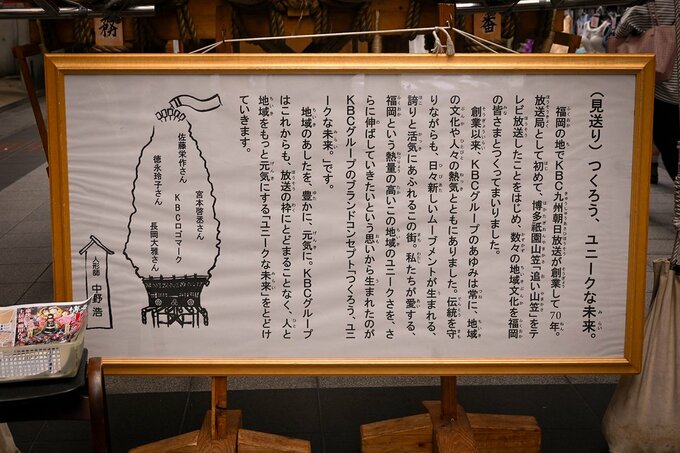 (見送り)つくろう、ユニークな未来。
福岡の地でKBC九州朝日放送が創業して70年。
放送局として初めて、博多祇園山笠「追い山笠」をテ
レビ放送したことをはじめ、数々の地域文化を福岡
の皆さまとつくってまいりました。
創業以来、KBCグループのあゆみは常に、地域
の文化や人々の熱気とともにありました。伝統を守
りながらも、日々新しいムーブメントが生まれる、
誇りと活気にあふれるこの街。私たちが愛する、
福岡という熱量の高いこの地域のユニークさを、さ
らに伸ばしていきたいという思いから生まれたのが
KBCグループのブランドコンセプト「つくろう、ユニ
ークな未来。」です。
地域のあしたを、豊かに、元気に。KBCグループ
はこれからも、放送の枠にとどまることなく、人と
地域をもっと元気にする「ユニークな未来」をとどけ
ていきます。
宮本啓丞さん
佐藤栄作さん
KBCロゴマーク
徳永玲子さん
長岡大雅さん
人形師 中野 浩